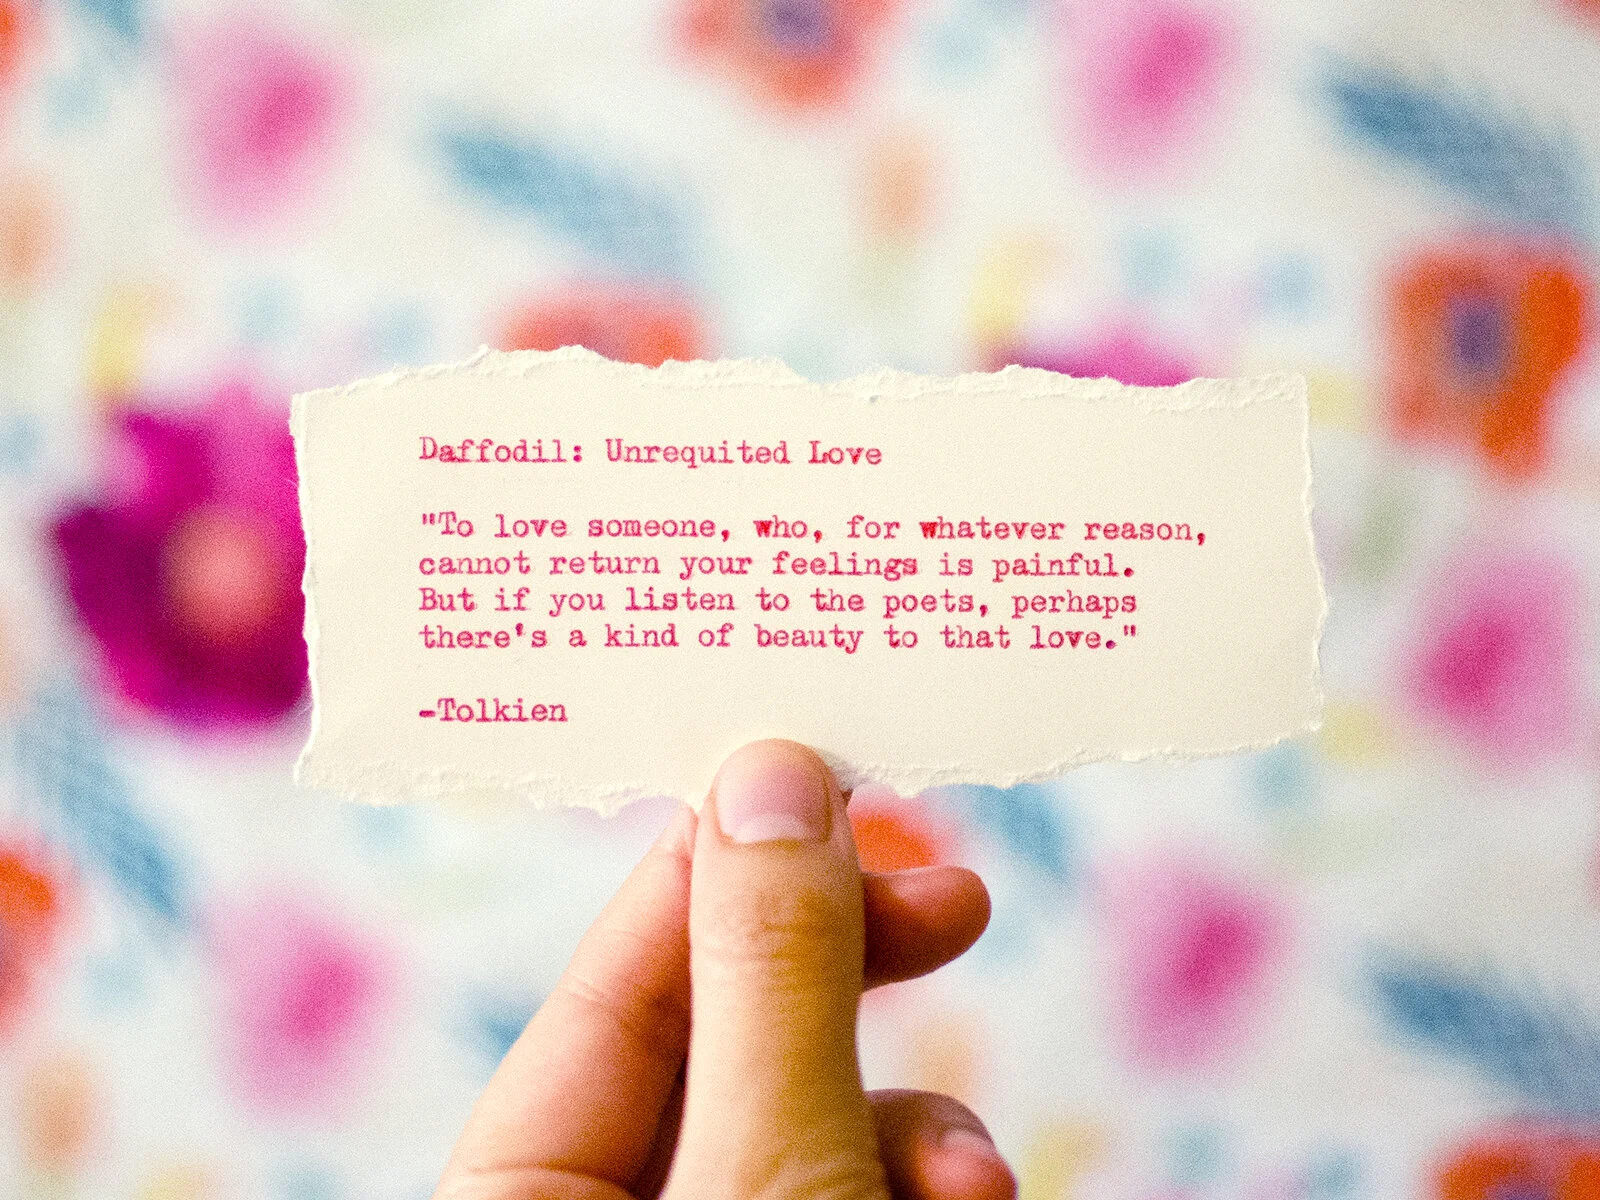 Daffodil: Unrequited Love
"To love someone, who, for whatever reason,
cannot return your feelings is painful.
But if you listen to the poets, perhaps
there's a kind of beauty to that love."
-Tolkien